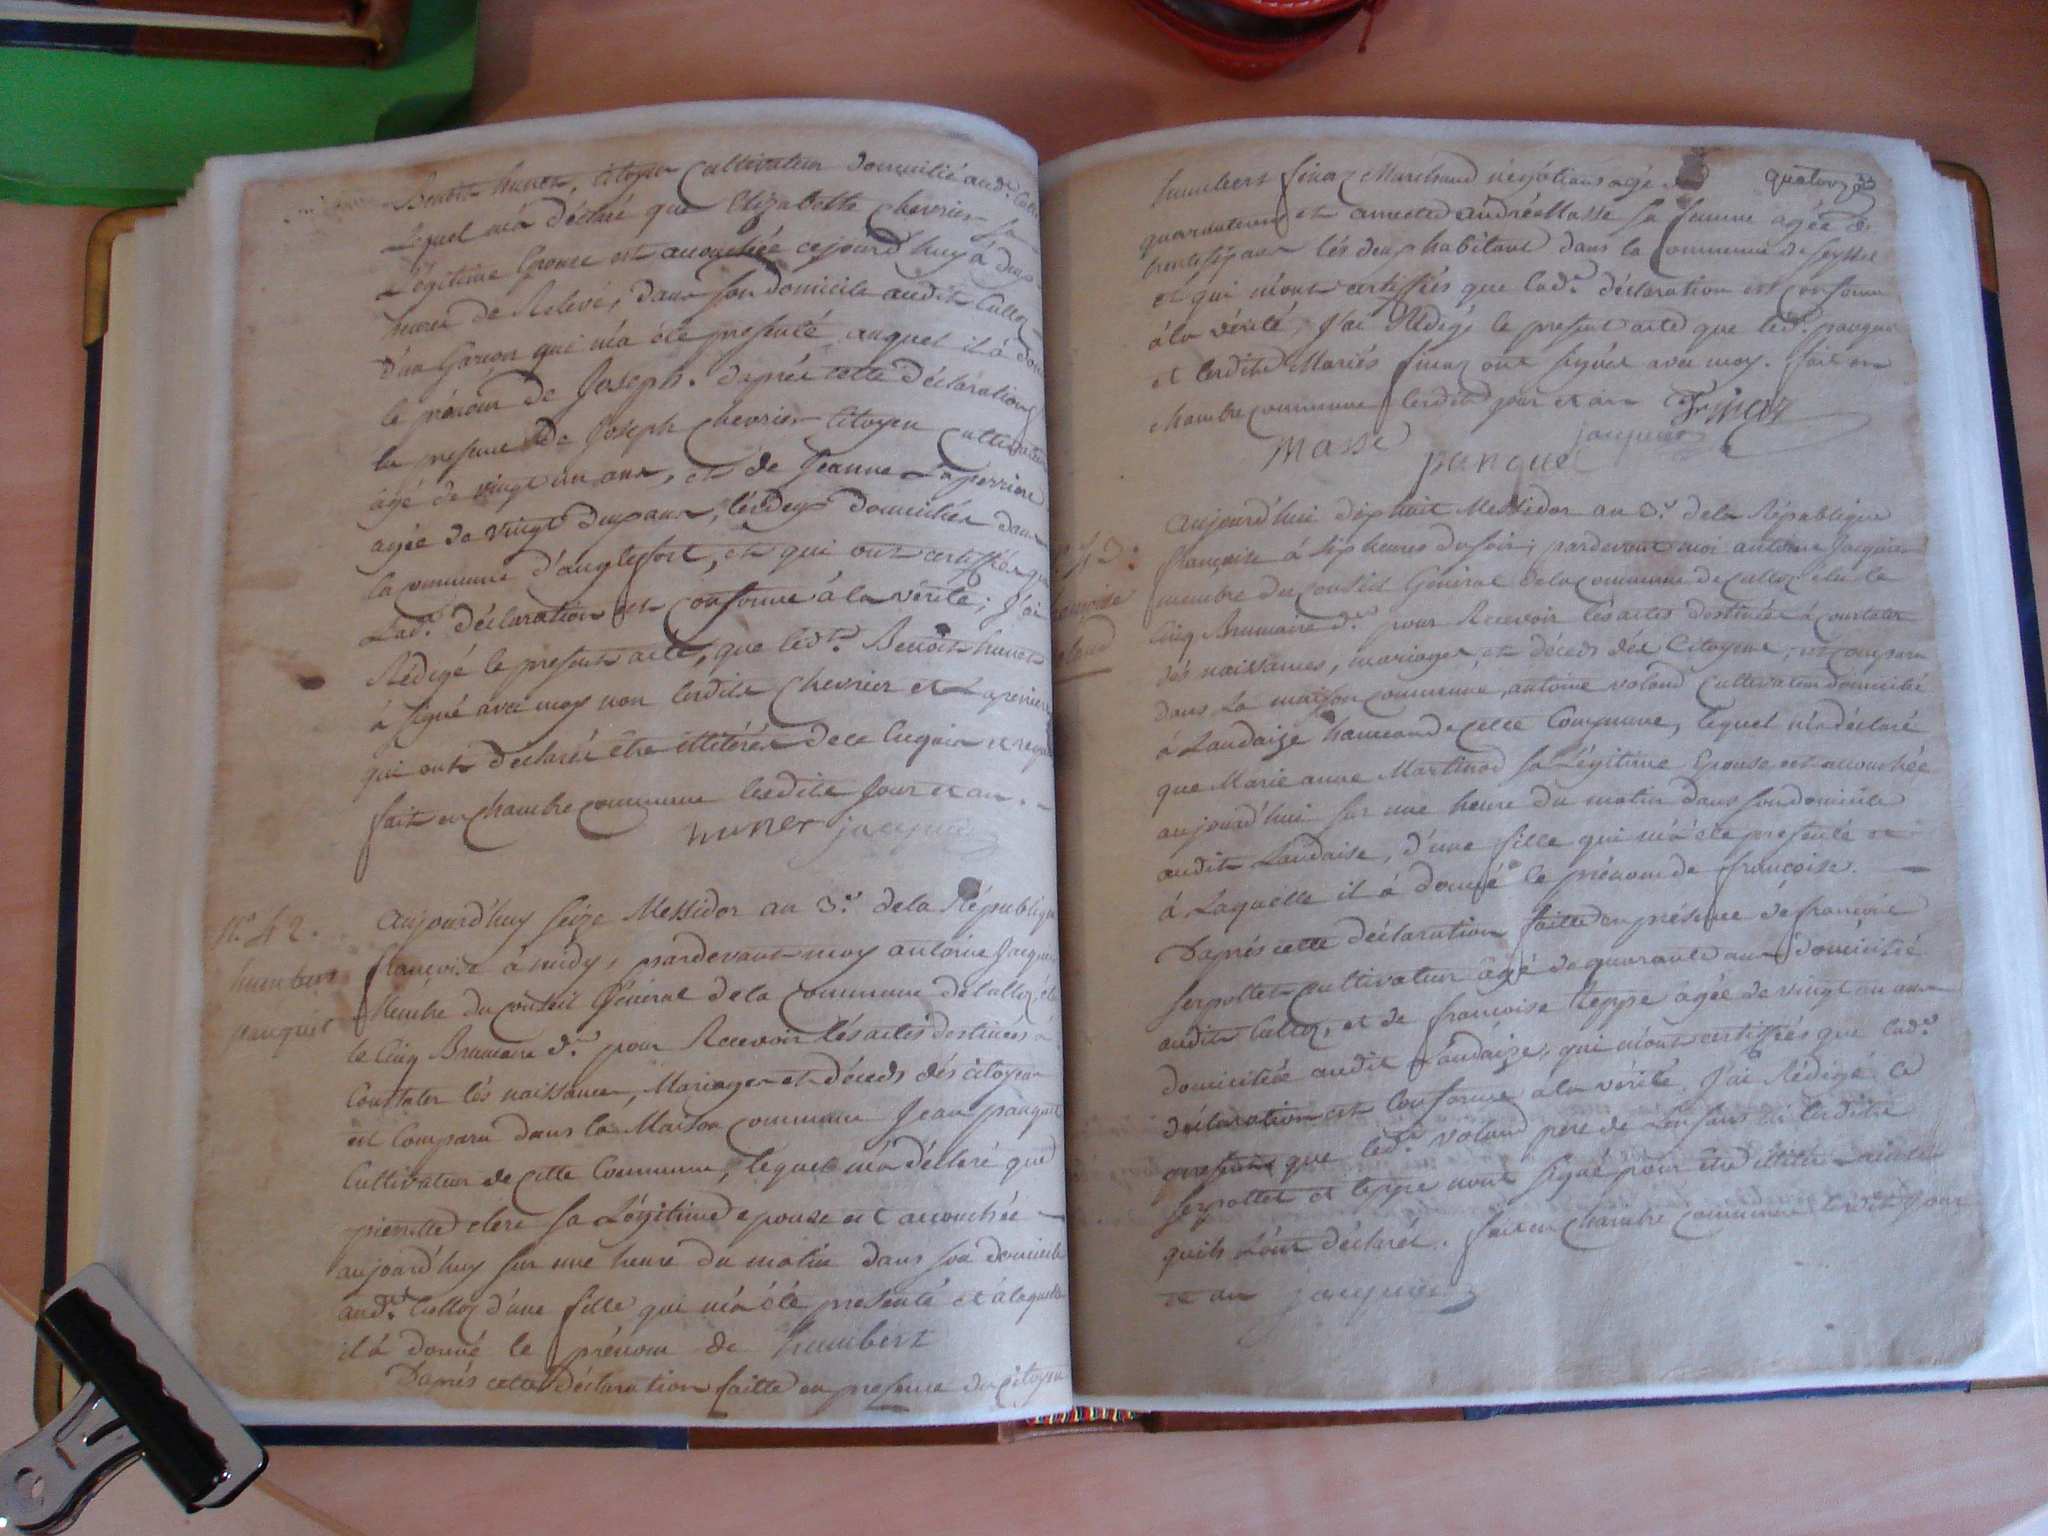 Benoit hunet, Citoyen Cultivateur domicilié aud.
Lequel m'a déclaré que Elizabette Chevrier sa
Légitime Epouse est accouchée cejourd'huy à deux
heures de Relevé, dans son domicile audit Culloz
d'un Garçon qui m'a été presenté auquel il à donné
le prénom de Joseph. d'après cette déclaration
la presence de Joseph Chevrier Citoyen cultivateur
agé de vingt un ans, et de Jeanne Laperriere
agée de vingt deux ans, lesdeux domiciliés dans
la commune d'anglefort, et qui ont certiffiés que
Lad.e déclaration est conforme à la vérité; J'ai
Rédigé le present acte, que led.t Benoit hunet
à signé avec moy non lesdits Chevrier et Laperriere
qui ont déclarés être illitérés de ce Enquis et requis
fait en chambre commune lesdits Jour et an. -
hunet jacquin
N.o 42.
humbert
panquet
aujourd'huy seize Messidor an 3.e de la République
françoise à midy, pardevant moy antoine Jacquin
Membre du conseil Général de la Commune de Culloz élu
le Cinq Brumaire d.er pour Recevoir les actes destinées à
Constater les naissances, Mariages et déceds dés citoyens
est Comparu dans la Maison commune Jean panquet
Cultivateur de cette Commune, lequel m'a déclaré que
pierrette clerc sa Légitime epouse est accouchée -
aujourd'huy sur une heure du matin dans son domicile
aud.it Culloz d'une fille qui m'à été presenté et à laquelle
il à donné le prénom de humbert
D'après cette déclaration faitte en presence du Citoyen
quatorze
humbert finaz Marchand négotiant agé de
quarante et annete andrée Masse sa femme agée de
trente six ans les deux habitant dans la Commune de Seyssel
et qui m'ont certiffiés que lad.e déclaration est conforme
à la vérité, J'ai Rédigé le present acte que led.t panquet
et lesdits Mariés finaz ont signés avec moy. fait en
chambre commune lesdits jour et an Finaz
Masse jacquin
panquet
43.
françoise
voland
aujourd'hui dixhuit Messidor an 3.e de la République
françoise à six heures du soir; pardevant moi antoine Jacquin
membre du conseil Général de la commune de Culloz élu le
Cinq Brumaire d.er pour Recevoir les actes destinées à constater
dés naissances, mariages, et déceds dés Citoyens, est comparu
dans La maison commune, antoine voland Cultivateur domicilié
à Landaize hameau de cette Commune, lequel m'a déclaré
que Marie anne Martinod sa Légitime Epouse est accouchée
aujourd'hui sur une heure du matin dans son domicile
audit Landaise, d'une fille qui m'à été presenté et
à Laquelle il à donné le prénom de françoise. -
D'après cette déclaration faitte en présence de françois
serpollet cultivateur âgé de quarante ans domicilié
audit Culloz, et de françoise teppe agée de vingt un ans
domiciliée audit Landaize, qui m'ont certiffiés que lad.e
déclaration est conforme à la vérité J'ai Rédigé le
present que led.t voland pere de L'enfant ni lesdits
serpollet et teppe n'ont signé pour être illitérés ainsi
quils L'ont déclarés. fait en chambre commune lesdits jour
et an jacquin